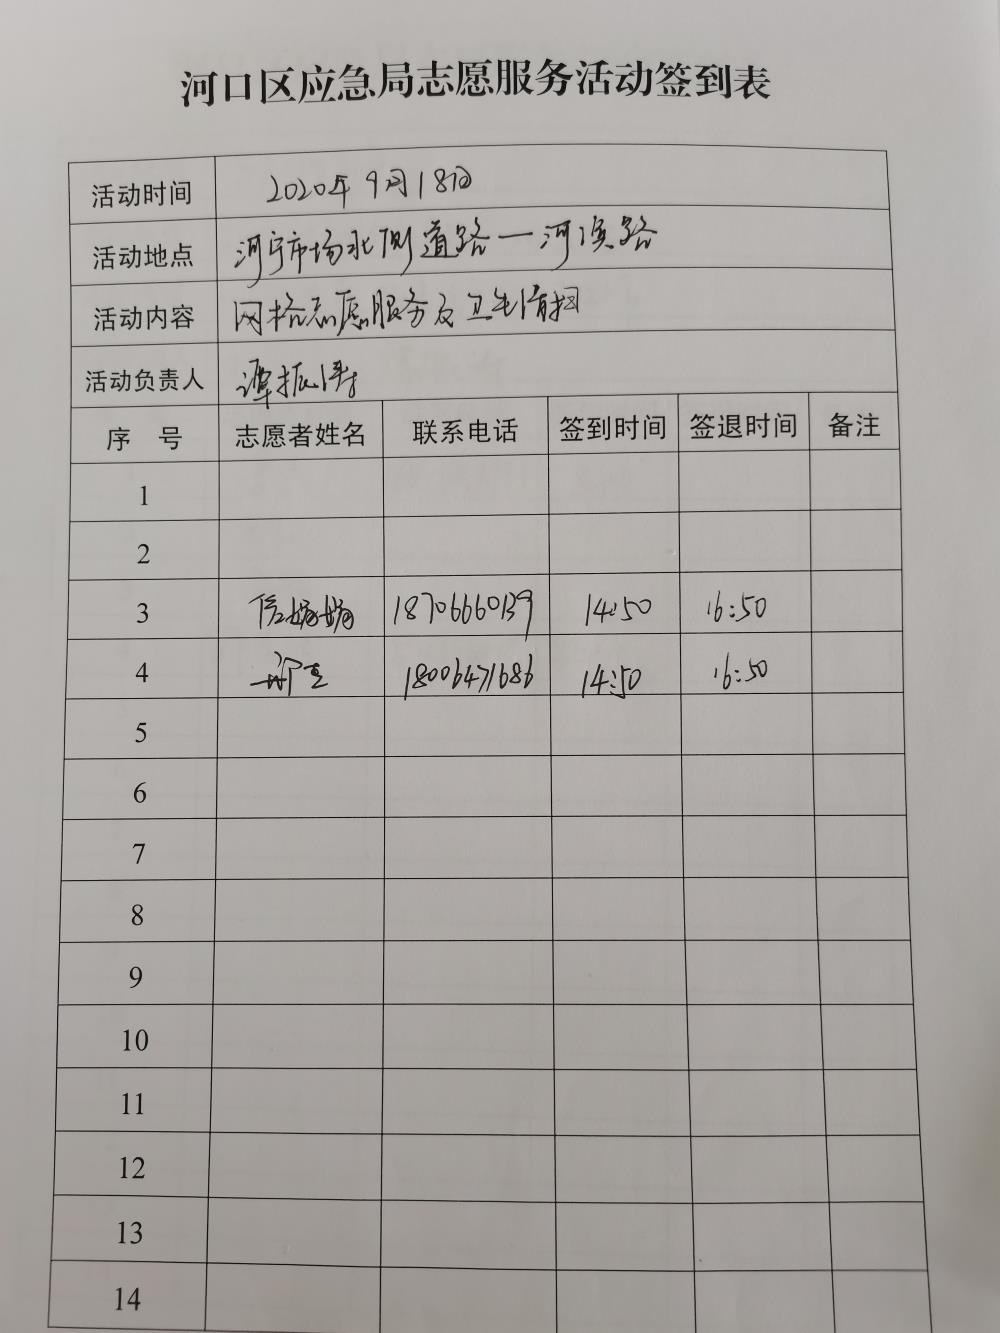 河口区应急局志愿服务活动签到表
活动时间 2020年9月18日
活动地点 河宁市场北侧道路一河滨路
活动内容 网格志愿服务及卫生清扫
活动负责人 谭振
序 号 志愿者姓名 联系电话 签到时间 签退时间 备注
1
2
3 18706660139 14:50 16:50
4 18006471686 14:50 16:50
5
6
7
8
9
10
11
12
13
14